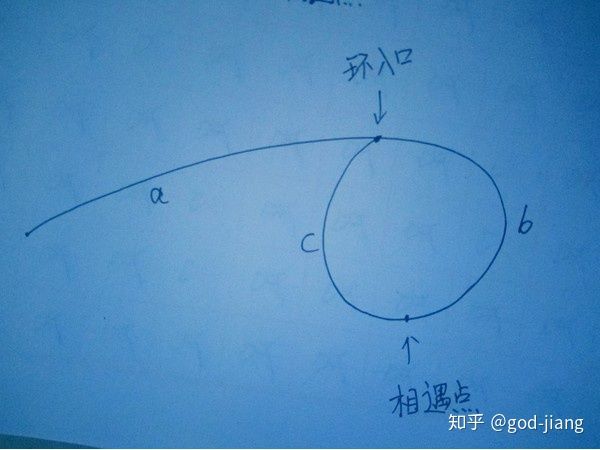 环入口
a
c
b
相遇点
知乎 @god-jiang